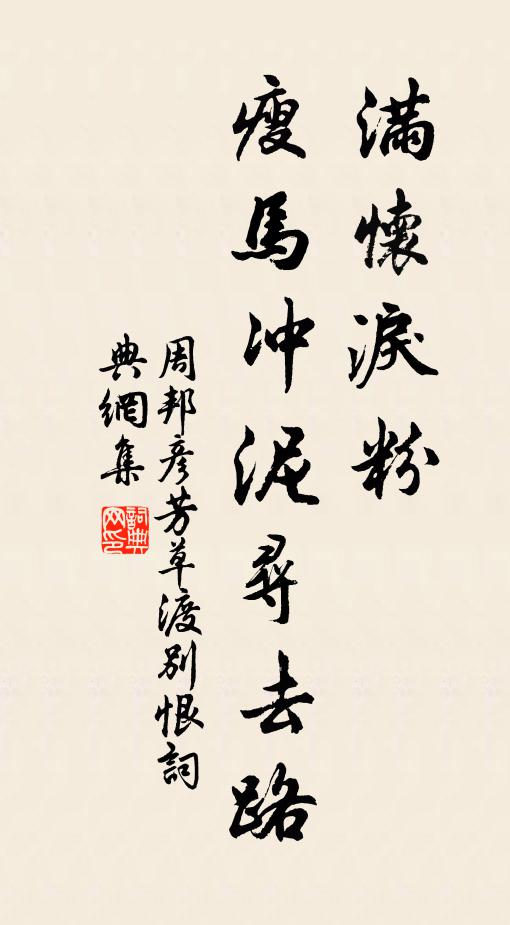 滿懷淚粉
瘦馬冲泥尋去路
周邦彥芳草渡別恨詞
典網集
詞典
网印